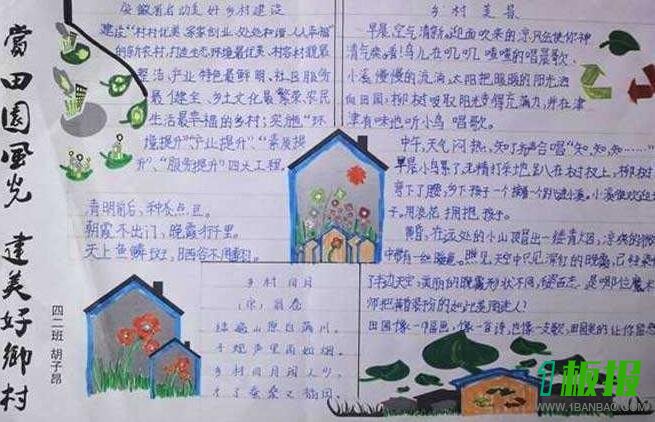 赏田园风光 建美好乡村
四二班 胡子昂
安徽省启动美好乡村建设
建设“村村优美、家家创业、处处和谐、人人幸福”
的新农村,打造生态环境最优美、村容村貌最
整洁、产业特色最鲜明、社区服务
最健全、乡土文化最繁荣、农民
生活最幸福的乡村;实施“环
境提升”、“产业提升”、“素质提
升”、“服务提升”四大工程。
清明前后,种瓜点豆。
朝霞不出门,晚霞行千里。
天上鱼鳞斑,晒谷不用翻。
乡村四月
绿遍山原白满川,
子规声里雨如烟。
乡村四月闲人少,
才了蚕桑又插田。
乡村美景
早晨,空气清新,迎面吹来的凉风会使你神
清气爽。看!鸟儿在叽叽喳喳的唱晨歌,
小溪慢慢的流淌,太阳把暖暖的阳光洒
向田园,柳树吸取阳光变得充满力,并在津
津有味地听小鸟唱歌。
中午,天气闷热,知了齐声合唱“知、知、知……”
早晨小鸟累了,无精打采地趴在树枝上,柳树
弯下了腰,
子。用浪花拥抱孩子。
傍晚,在远处的小山顶冒出一缕青烟,
师把
田园像一幅画,像一首诗,也像一支歌,
1板报
WWW.1BANBAO.COM